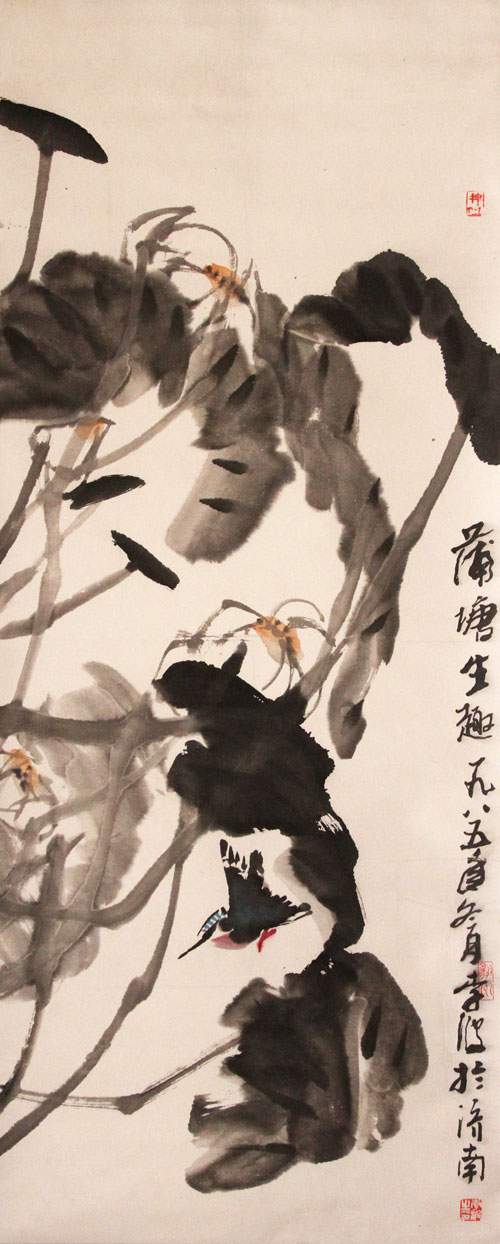 蒲塘生趣 一九八五年冬月李波於济南